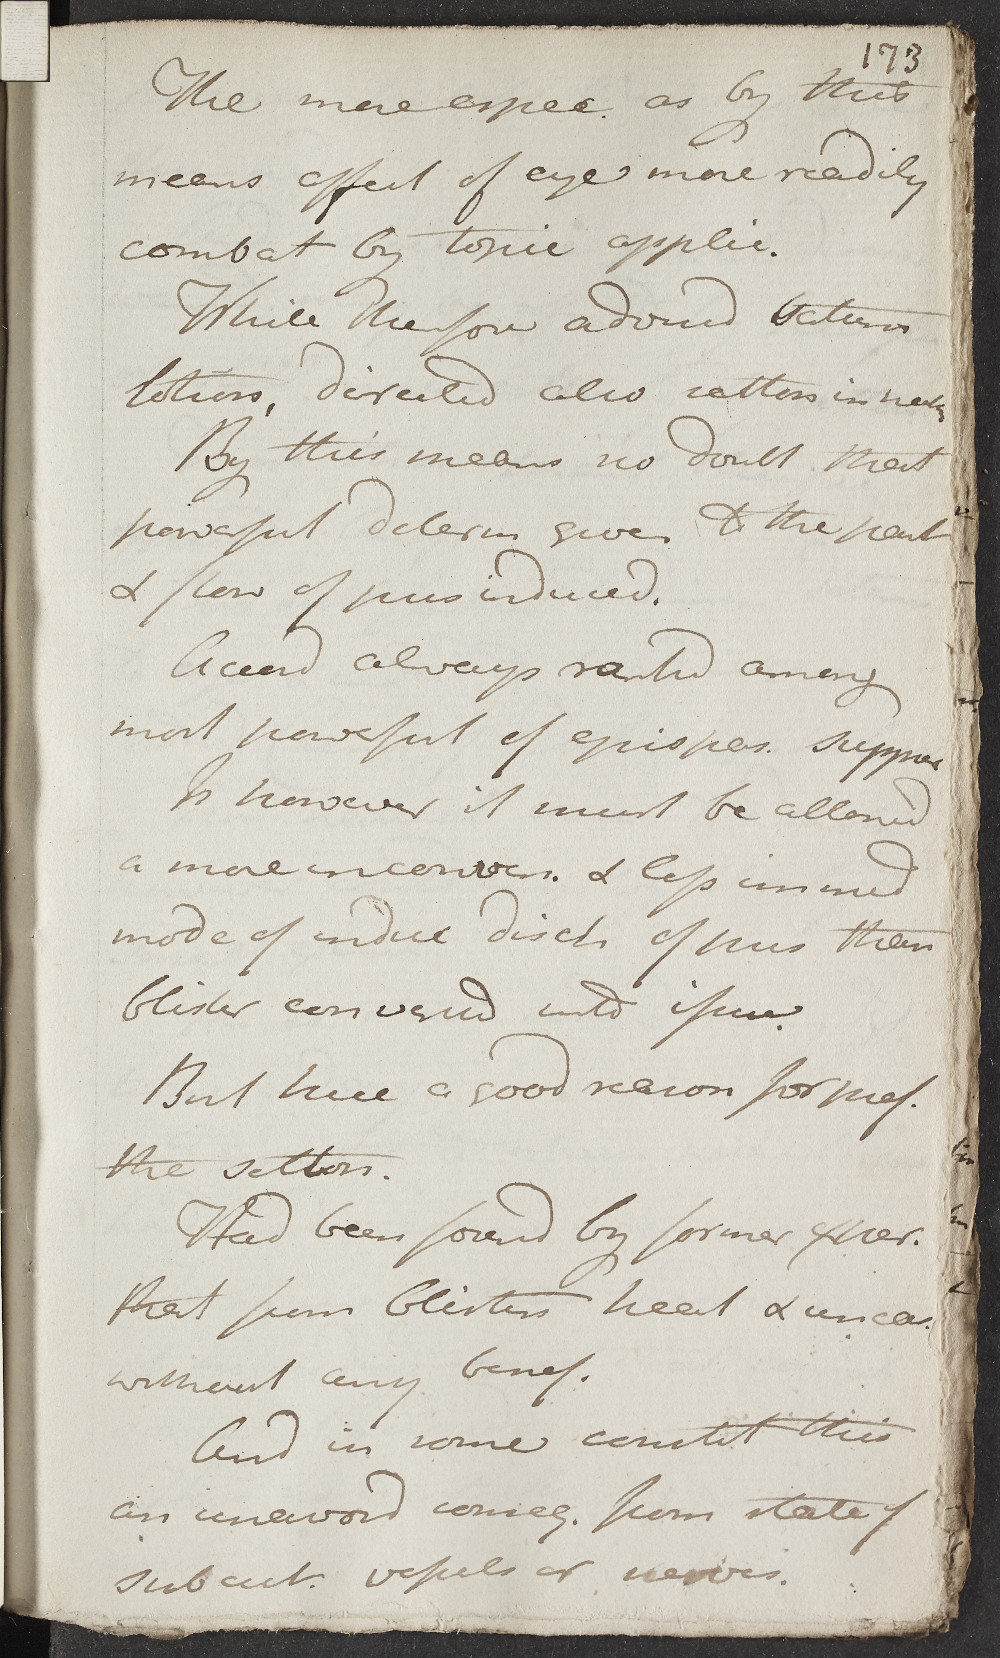 173
The more espec. as by this
means effect of eye more readily
combat by topic applic.
While therefore advised Saturn
lotions, directed also setton in neck
By this means no doubt that
powerful determ given to the part
& flow of pus induced.
Accord always ranked among
most powerful of epispas. suppur
Is however it must be allowed
a more inconven. & less immed
mode of induc disch of pus than
blister converted into issue.
But here a good reason for pref.
the setton.
Had been found by former exper.
that from blisters heat & uneas.
without any benef.
And in some constit this
an unavoid conseq. from state of
subcut. vessels or nerves.